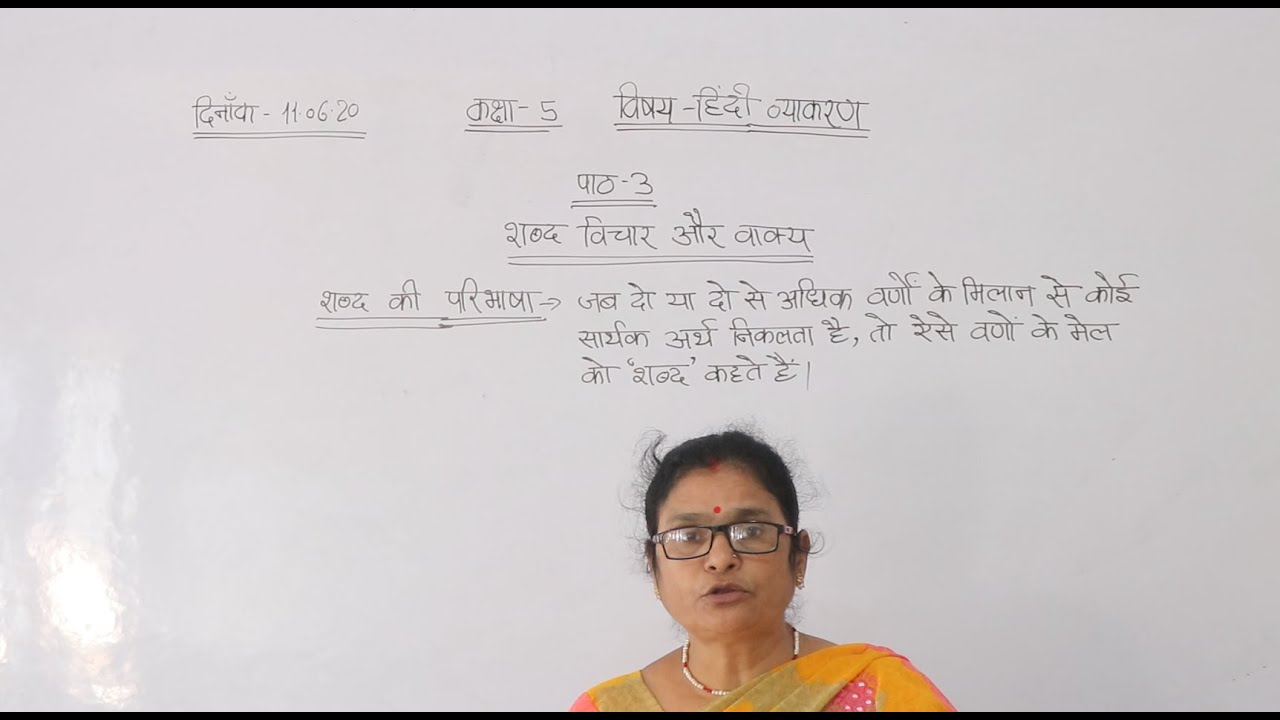 दिनाँक - 11.06.20 कक्षा - 5 विषय - हिंदी व्याकरण
पाठ - 3
शब्द विचार और वाक्य
शब्द की परिभाषा → जब दो या दो से अधिक वर्णों के मिलान से कोई
सार्थक अर्थ निकलता है, तो ऐसे वर्णों के मेल
को ‘शब्द’ कहते हैं।